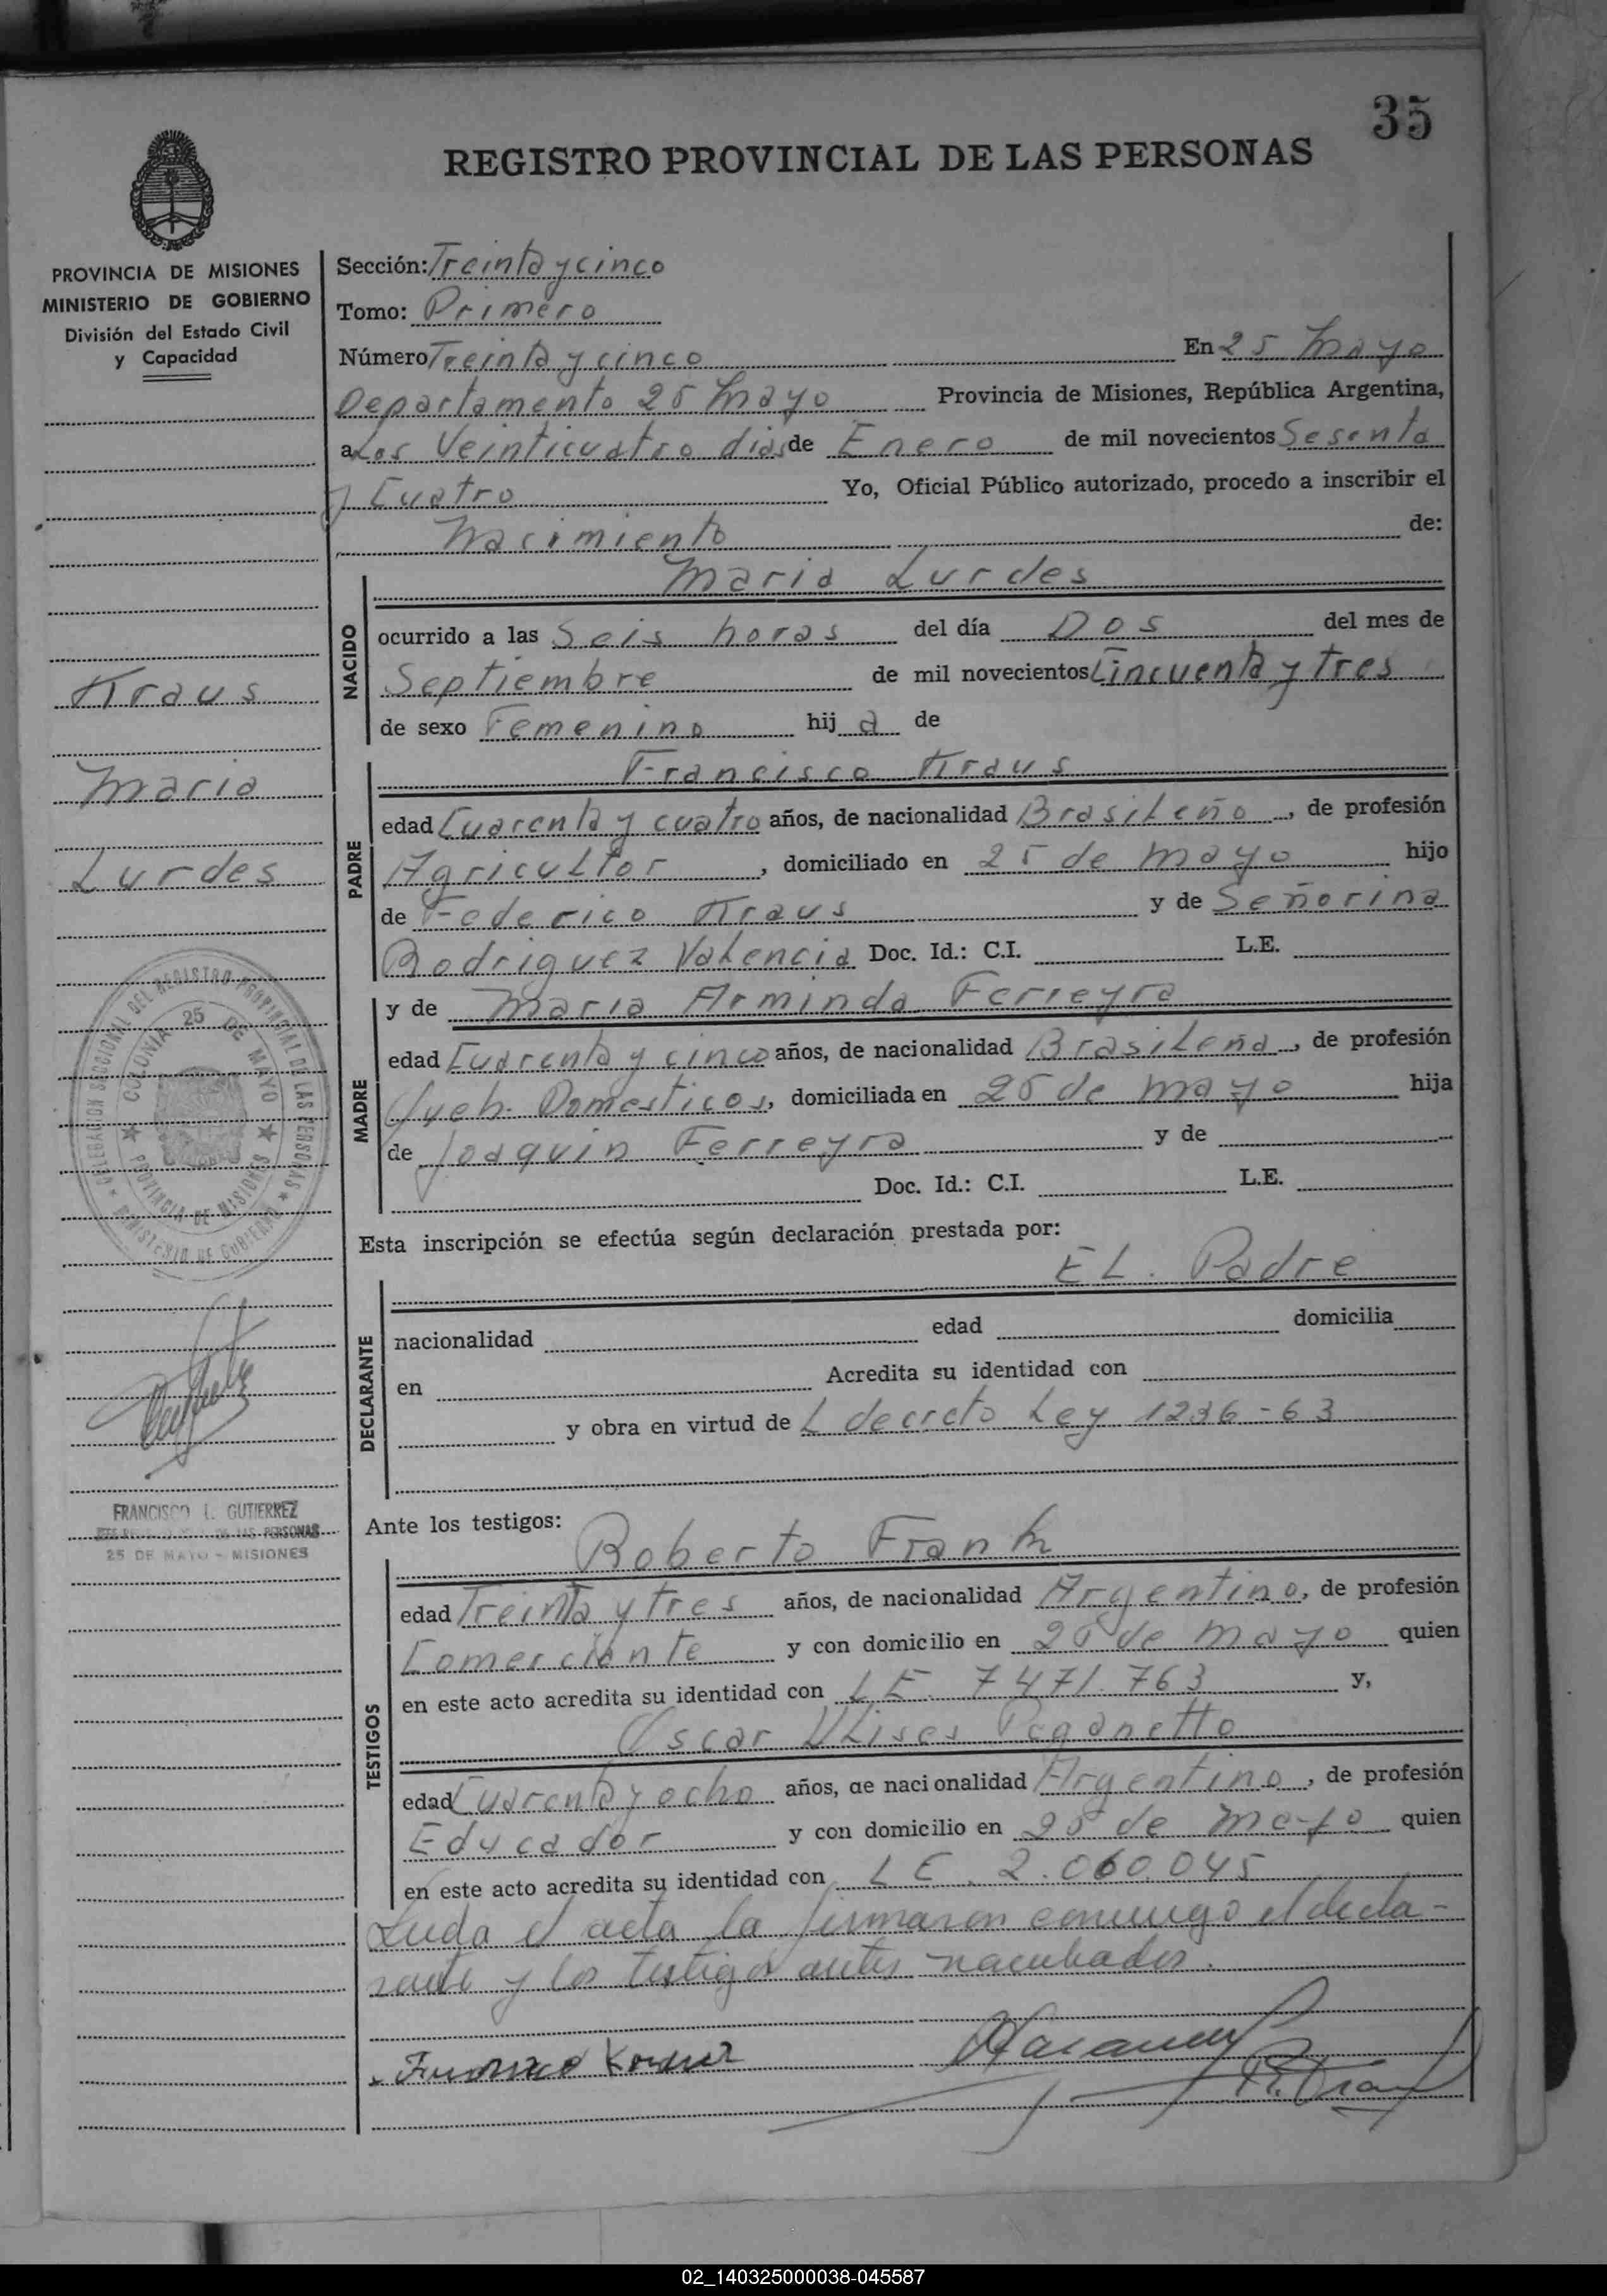 35
REGISTRO PROVINCIAL DE LAS PERSONAS
PROVINCIA DE MISIONES
MINISTERIO DE GOBIERNO
División del Estado Civil
y Capacidad
Kraus
Maria
Lurdes
DELEGACION SECCIONAL DEL REGISTRO PROVINCIAL DE LAS PERSONAS
COLONIA 25 DE MAYO
PROVINCIA DE MISIONES
MINISTERIO DE GOBIERNO
FRANCISCO L. GUTIERREZ
DE LAS PERSONAS
25 DE MAYO - MISIONES
Sección: Treinta y cinco
Tomo: Primero
Número Treinta y cinco En 25 Mayo
Departamento 25 Mayo Provincia de Misiones, República Argentina,
a Los Veinticuatro dias de Enero de mil novecientos Sesenta
y Cuatro Yo, Oficial Público autorizado, procedo a inscribir el
Nacimiento de:
NACIDO
Maria Lurdes
ocurrido a las Seis horas del día Dos del mes de
Septiembre de mil novecientos Cincuenta y tres
de sexo Femenino hij a de
PADRE
Francisco Kraus
edad Cuarenta y cuatro años, de nacionalidad Brasileño, de profesión
Agricultor, domiciliado en 25 de Mayo hijo
de Federico Kraus y de Señorina
Rodriguez Valencia Doc. Id.: C.I. L.E.
MADRE
y de Maria Arminda Ferreyra
edad Cuarenta y cinco años, de nacionalidad Brasileña, de profesión
Queh. Domesticos, domiciliada en 25 de Mayo hija
de Joaquin Ferreyra y de
Doc. Id.: C.I. L.E.
Esta inscripción se efectúa según declaración prestada por:
DECLARANTE
EL. Padre
nacionalidad edad domicilia
en Acredita su identidad con
y obra en virtud de L decreto Ley 1236-63
Ante los testigos:
TESTIGOS
Roberto Frank
edad Treinta y tres años, de nacionalidad Argentino, de profesión
Comerciante y con domicilio en 25 de Mayo quien
en este acto acredita su identidad con LE. 7471.763 y,
Oscar Ulises Paganetto
edad Cuarenta y ocho años, de nacionalidad Argentino, de profesión
Educador y con domicilio en 25 de Mayo quien
en este acto acredita su identidad con LE. 2.060.045
Leida el acta la firmaron conmigo el decla-
rante y los testigos antes nombrados.
02_140325000038-045587